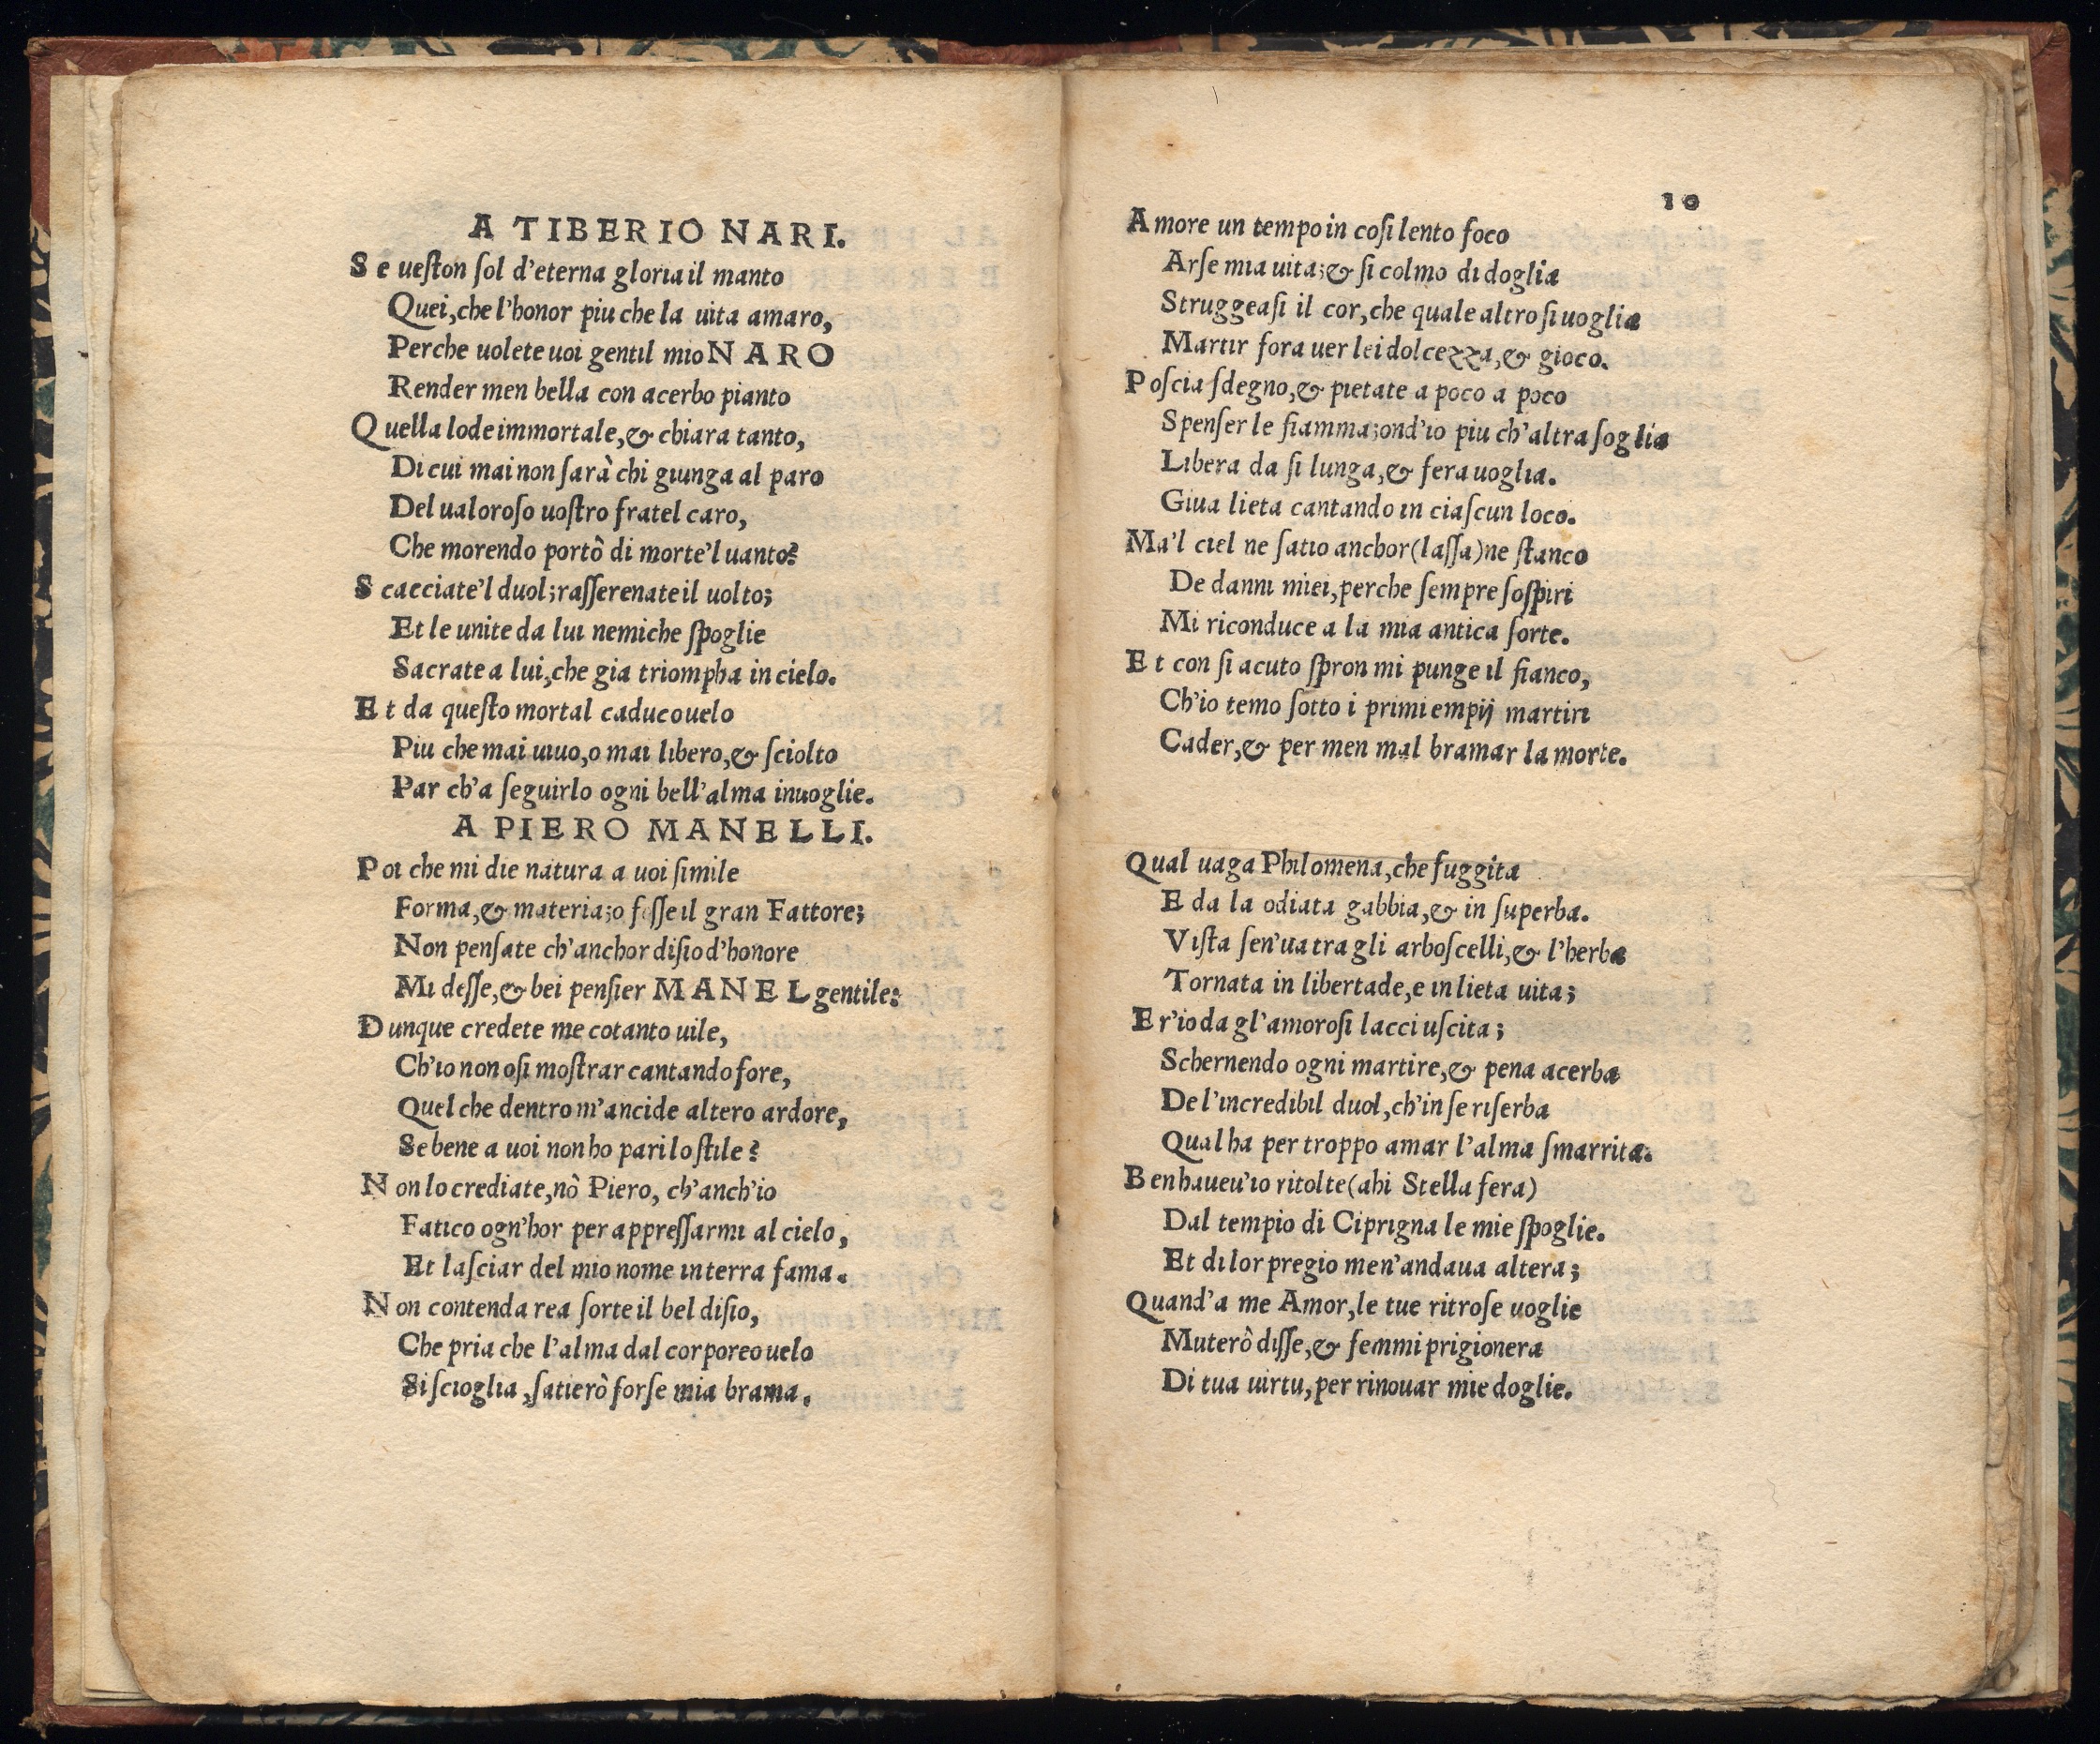 A TIBERIO NARI.
Se ueſton ſol d'eterna gloria il manto
Quei, che l'honor piu che la uita amaro,
Perche uolete uoi gentil mio NARO
Render men bella con acerbo pianto
Quella lode immortale, & chiara tanto,
Di cui mai non ſarà chi giunga al paro
Del ualoroſo uoſtro fratel caro,
Che morendo portò di morte'l uanto?
Scacciate'l duol; raſſerenate il uolto;
Et le unite da lui nemiche ſpoglie
Sacrate a lui, che gia triompha in cielo.
Et da queſto mortal caduco uelo
Piu che mai uiuo, o mai libero, & ſciolto
Par ch'a ſeguirlo ogni bell'alma inuoglie.
A PIERO MANELLI.
Poi che mi die natura a uoi ſimile
Forma, & materia; o feſſe il gran Fattore;
Non penſate ch'anchor diſio d'honore
Mi deſſe, & bei penſier MANEL gentile:
Dunque credete me cotanto uile,
Ch'io non oſi moſtrar cantando fore,
Quel che dentro m'ancide altero ardore,
Se bene a uoi non ho pari lo ſtile?
Non lo crediate, nò Piero, ch'anch'io
Fatico ogn'hor per appreſſarmi al cielo,
Et laſciar del mio nome in terra fama.
Non contenda rea ſorte il bel diſio,
Che pria che l'alma dal corporeo uelo
Si ſcioglia, ſatierò forſe mia brama.
10
Amore un tempo in coſi lento foco
Arſe mia uita; & ſi colmo di doglia
Struggeaſi il cor, che quale altro ſi uoglia
Martir fora uer lei dolcezza, & gioco.
Poſcia ſdegno, & pietate a poco a poco
Spenſer le fiamma; ond'io piu ch'altra ſoglia
Libera da ſi lunga, & fera uoglia.
Giua lieta cantando in ciaſcun loco.
Ma'l ciel ne ſatio anchor (laſſa) ne ſtanco
De danni miei, perche ſempre ſoſpiri
Mi riconduce a la mia antica ſorte.
Et con ſi acuto ſpron mi punge il fianco,
Ch'io temo ſotto i primi empij martiri
Cader, & per men mal bramar la morte.
Qual uaga Philomena, che fuggita
E da la odiata gabbia, & in ſuperba.
Viſta ſen'ua tra gli arboſcelli, & l'herba
Tornata in libertade, e in lieta uita;
Er'io da gl'amoroſi lacci uſcita;
Schernendo ogni martire, & pena acerba
De l'incredibil duol, ch'in ſe riſerba
Qual ha per troppo amar l'alma ſmarrita.
Ben haueu'io ritolte (ahi Stella fera)
Dal tempio di Ciprigna le mie ſpoglie.
Et di lor pregio men'andaua altera;
Quand'a me Amor, le tue ritroſe uoglie
Muterò diſſe, & femmi prigionera
Di tua uirtu, per rinouar mie doglie.